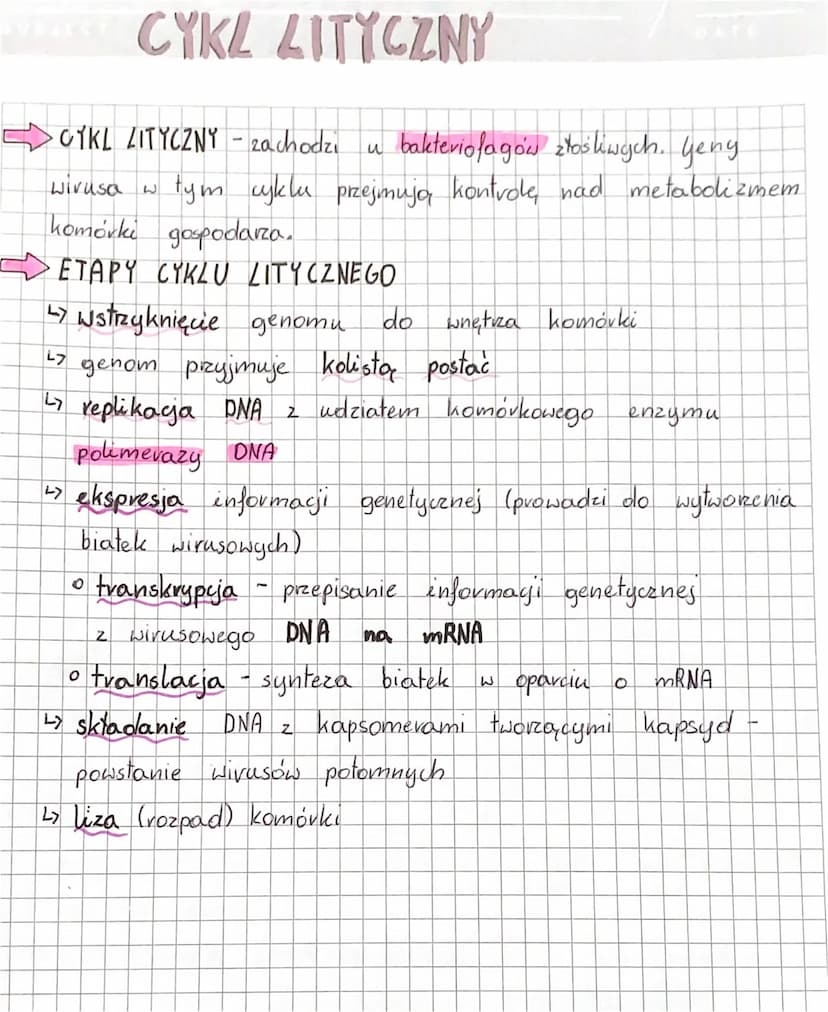 CYKL LITYCZNY
SUBJECT DATE
⇨ CYKL LITYCZNY - zachodzi u bakteriofagów złośliwych. Geny
wirusa w tym cyklu przejmują kontrolę nad metabolizmem
komórki gospodarza.
⇨ ETAPY CYKLU LITYCZNEGO
↳ wstrzyknięcie genomu do wnętrza komórki
↳ genom przyjmuje kolistą postać
↳ replikacja DNA z udziałem komórkowego enzymu
polimerazy DNA
↳ ekspresja informacji genetycznej (prowadzi do wytworzenia
białek wirusowych)
o transkrypcja - przepisanie informacji genetycznej
z wirusowego DNA na mRNA
o translacja - synteza białek w oparciu o mRNA
↳ składanie DNA z kapsomerami tworzącymi kapsyd -
powstanie wirusów potomnych
↳ liza (rozpad) komórki